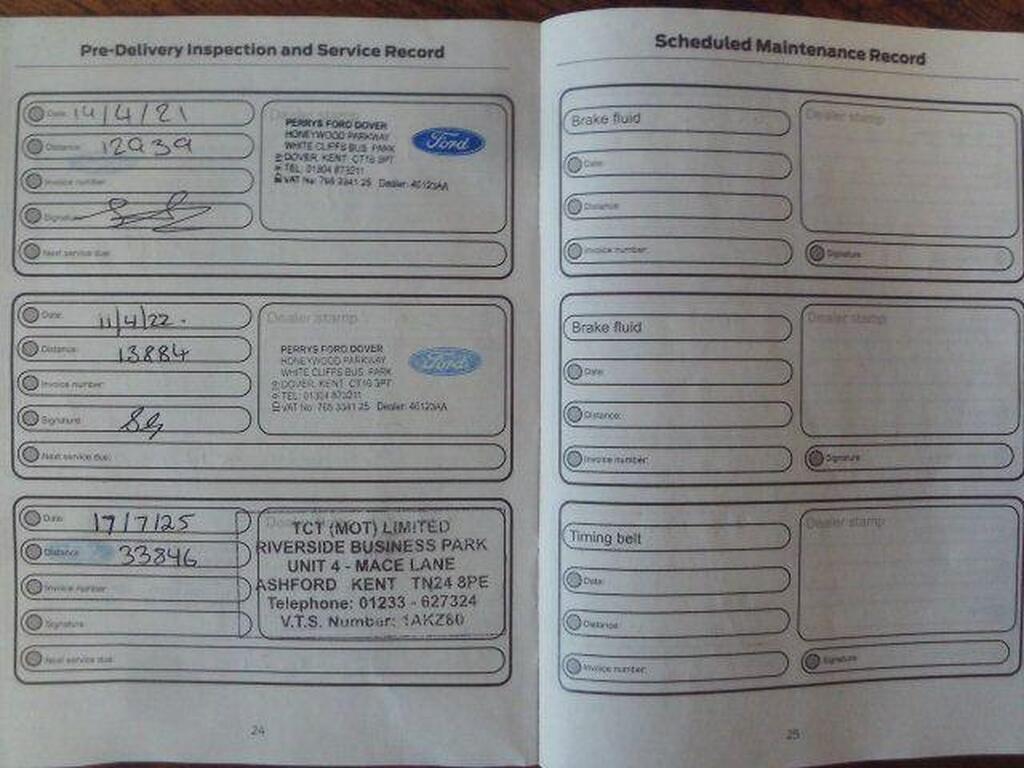 Pre-Delivery Inspection and Service Record
Date: 14/4/21
Distance: 12939
Invoice number:
Signature:
Next service due:
PERRYS FORD DOVER
HONEYWOOD PARKWAY
WHITE CLIFFS BUS. PARK
DOVER, KENT CT16 3PT
TEL: 01304 873211
VAT No: 765 3341 25 Dealer: 40123AA
Ford
Date: 11/4/22.
Distance: 13884
Invoice number:
Signature:
Next service due:
Dealer stamp
PERRYS FORD DOVER
HONEYWOOD PARKWAY
WHITE CLIFFS BUS. PARK
DOVER, KENT CT16 3PT
TEL: 01304 873211
VAT No: 765 3341 25 Dealer: 40123AA
Ford
Date: 17/7/25
Distance: 33846
Invoice number:
Signature:
Next service due:
TCT (MOT) LIMITED
RIVERSIDE BUSINESS PARK
UNIT 4 - MACE LANE
ASHFORD KENT TN24 8PE
Telephone: 01233 - 627324
V.T.S. Number: 1AKZ60
24
Scheduled Maintenance Record
Brake fluid
Date:
Distance:
Invoice number:
Dealer stamp
Signature
Brake fluid
Date:
Distance:
Invoice number:
Dealer stamp
Signature
Timing belt
Date:
Distance:
Invoice number:
Dealer stamp
Signature
25